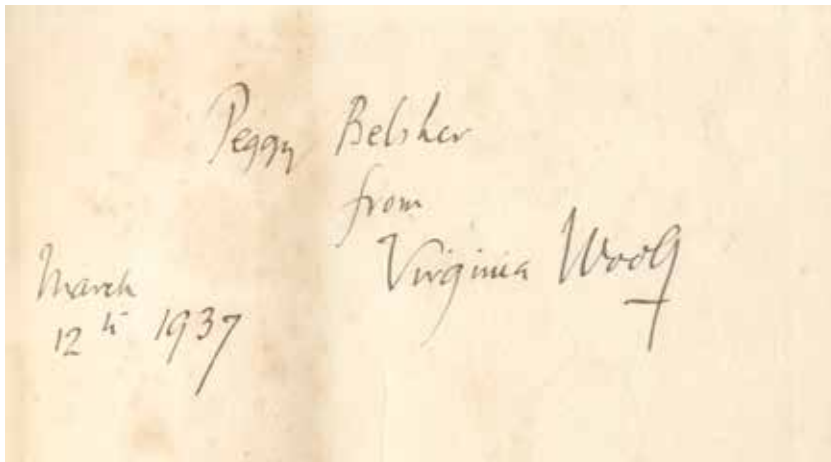 Peggy Belsher
from
Virginia Woolf
March
12th 1937